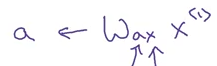 a ← Wₐₓ x⁽ⁱ⁾